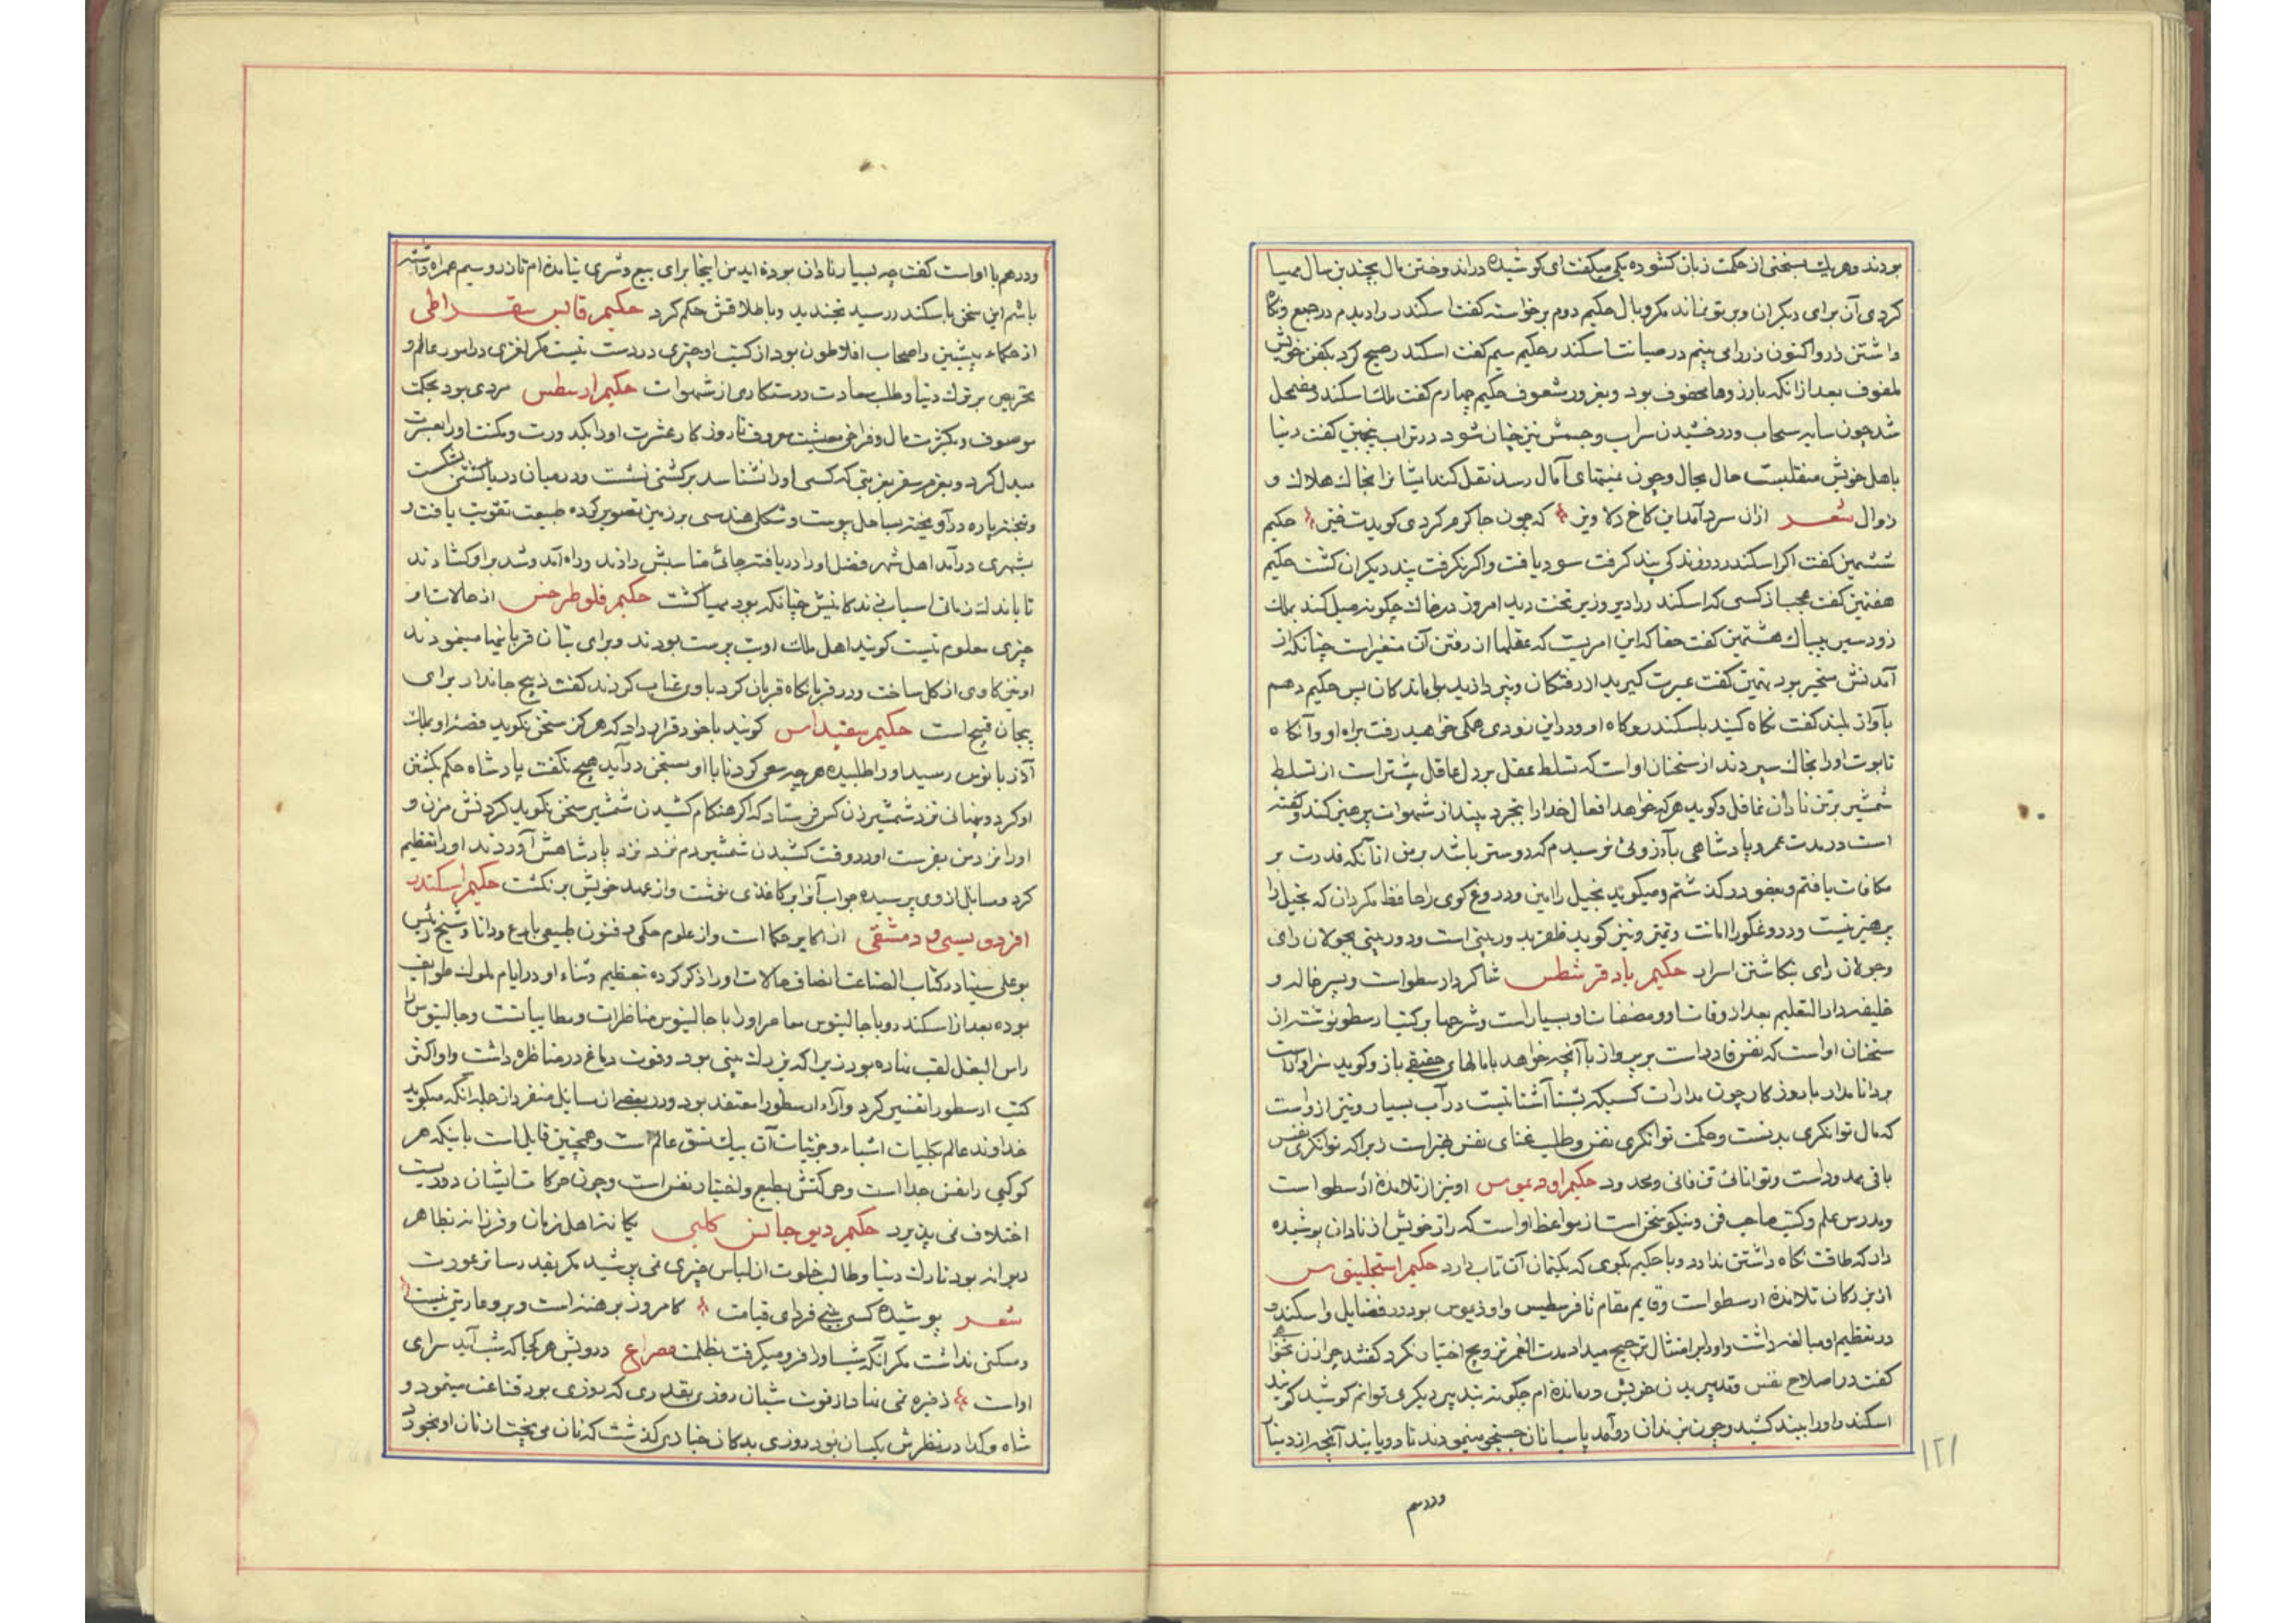 بودند و هر یك بسخنی از حکمت زبان کشوده یکی میکفت ای کوشیده در اندوختن مال بچندین سال مهیا
کردی آن برای دیکران و بر تو نماند مکر وبال حکیم دوم برخواسته کفت اسکندر را دیدم در جمع و نکاه
داشتن زر و اکنون زر را می بینم در صیانت اسکندر حکیم سیم کفت اسکندر صبح کرد بکفن خویش
ملفوف بعد از انکه بارزوها محفوف بود و بغرور شعوف حکیم چهارم کفت ملك اسکندر مضمحل
شد چون سایه سحاب و درخشیدن سراب و جسمش نیز چنان شود در تراب پنجمین کفت دنیا
باهل خویش منقلبست حال بحال و چون بمنتهای آمال رسد نقل کند ایشانرا بخاك هلاك و
زوال شعر ازان سرد آمد این کاخ دلاویز که چون جا کرم کردی کویدت خیز حکیم
ششمین کفت اکر اسکندر در زندکی پند کرفت سود یافت و اکر نکرفت پند دیکران کشت حکیم
هفتمین کفت عجب از کسی که اسکندر را دیروز بر تخت دید امروز در خاك چکونه میل کند بملك
زود سیر بیباك هشتمین کفت حقا که این امریست که عقلها از رفتن آن متغیر است چنانکه از
آمدنش متحیر بود نهمین کفت عبرت کیرید از رفتکان و بپردازید بواماندکان پس حکیم دهم
بآواز بلند کفت نکاه کنید باسکندر و کاه او و در این زودی همکی خواهید رفت براه او و آنکاه
تابوت او را بخاك سپردند از سخنان اوست که تسلط عقل بر دل عاقل بیشتر است از تسلط
شمشیر بر تن نادان غافل و کوید هر که خواهد افعال خدا را بتجرد بیند از شهوات پرهیز کند و کفته
است در مدت عمر و پادشاهی بآرزوئی نرسیدم که دوستر باشد بر من از آنکه قدرت بر
مکافات یافتم و بعفو در کذشتم و میکوید بخیل را امین و دروغ کوی را حافظ مکردان که بخیل را
پرهیز نیست و دروغکو را امانت و تمیز و نیز کوید ظفر بدوربینی است و دوربینی بجولان رای
و جولان رای بنکاشتن اسرار حکیم ثاوفرسطس شاکرد ارسطو است و پسر خاله و
خلیفه دار التعلیم بعد از وفات او و مصنفات او بسیار است و شرحها بر کتب ارسطو نوشته از
سخنان اوست که نفس قادر است بر پرواز با آنچه خواهد ببالهای حقیقی باز و کوید سزاوار است
بردانا مدارا با روزکار چون مدارات کسیکه بشنا آشنا نیست در آب بسیار و نیز ازوست
که مال توانکری بدنست و حکمت توانکری نفس و طلب غنای نفس بهتر است زیرا که توانکری نفس
باقی ممدود است و توانائی تن فانی و محدود حکیم اودیموس او نیز از تلامذه ارسطو است
و مدرس علم و کتب صاحب فن و نیکو سخن است از مواعظ او است که راز خویش از نادان پوشیده
دار که طاقت نکاه داشتن ندارد و با حکیم بکوی که بکتمان آن تاب دارد حکیم اسخیلینوس
از بزرکان تلامذه ارسطو است و قایم مقام ثافرسطیس و اوذیموس بود در فضایل و اسکندر
در تعظیم او مبالغه داشت و او را بر امثال ترجیح میداد مدت العمر تزویج اختیار نکرد کفتند چرا زن نخواهی
کفت در اصلاح نفس و تدبیر بدن خویش درمانده ام چکونه بتدبیر دیکری توانم کوشید کویند
اسکندر او را ببند کشید و چون بزندان درآمد پاسبانان جستجو مینمودند تا دریابند آنچه از دینار
و درهم
۱۲۱
و درهم با اوست کفت چه بسیار نادان بوده اید من اینجا برای بیع و شری نیامده ام تا زر و سیم همراه داشته
باشم این سخن باسکندر رسید بخندید و باطلاقش حکم کرد حکیم قابس سقراطی
از حکماء پیشین و اصحاب افلاطون بود از کتب او چیزی در دست نیست مکر لغزی در امور عالم و
تحریص بر ترك دنیا و طلب سعادت و رستکاری از شهوات حکیم ارسطس مردی بود بحکمت
موصوف و بکثرت مال و فراخی معیشت معروف تا روزکار عشرت او را بکدورت و مکنت او را بعسرت
مبدل کرد و بعزم سفر بغربتی که کسی او را نشناسد بر کشتی نشست و در میان دریا کشتی شکست
و بتخته پاره در آویخته بساحل پیوست و شکل هندسی بر زمین تصویر کرده طبیعت تقویت یافت و
بشهری در آمد اهل شهر فضل او را دریافته جائی مناسبش دادند و راه آمد و شد بر او کشادند
تا باندك زمانی اسباب زندکانیش چنانکه بود مهیا کشت حکیم فلوطرخس از حالات او
چیزی معلوم نیست کویند اهل ملك او بت پرست بودند و برای بتان قربانیها مینمودند
او نیز کاوی از کل ساخت و در قربانکاه قربان کرد با وی عتاب کردند کفت ذبح جاندار برای
بیجان قبیح است حکیم سقیداس کویند با خود قرار داد که هرکز سخن نکوید قصه او بملك
آذر بانوس رسید او را طلبیده هر چه سعی کرد تا با او بسخن در آید هیچ نکفت پادشاه حکم بکشتن
او کرد و پنهانی نزد شمشیر زن کس فرستاد که اکر هنکام کشیدن شمشیر سخن نکوید کردنش مزن و
او را نزد من بفرست او در وقت کشیدن شمشیر دم نزد نزد پادشاهش آوردند او را تعظیم
کرد و مسایل از وی پرسیده جواب آنرا بر کاغذی نوشت و از عهد خویش بر نکشت حکیم اسکندر
افردوسیی دمشقی از اکابر حکما است و از علوم حکمی و فنون طبیعی بارع و دانا و شیخ رئیس
بوعلی سینا در کتاب الصناعات انصاف حالات او را ذکر کرده بتعظیم و ثناء او در ایام ملوك طوایف
بوده بعد از اسکندر و با جالینوس معاصر او را با جالینوس مناظرات و مطایباتست و جالینوس را
راس البغل لقب نهاده بود زیرا که بزرك بینی بود و قوت دماغ در مناظره داشت و او اکثر
کتب ارسطو را تفسیر کرد و آراء ارسطو را معتقد بود و در بعضی از مسایل منفرد از جمله آنکه میکوید
خداوند عالم بکلیات اشیاء و جزئیات آن بیك نسق عالم است و همچنین قایل است باینکه هر
کوکبی را نفس جدا است و حرکتش بطبع و اختیار نفس است و چون حرکات ایشان دوریست
اختلاف نمی پذیرد حکیم دیوجانس کلبی یکانه اهل زمان و فرزانه بظاهر
دیوانه بود تارك دنیا و طالب خلوت از لباس چیزی نمی پوشید مکر بقدر ساتر عورت
شعر پوشیده کسی بینی فردای قیامت کامروز برهنه است و برو عاریتی نیست
و مسکنی نداشت مکر آنکه شب او را فرو میکرفت بظلمت مصراع درویش هر کجا که شب آید سرای
اوست ذخیره نمی نهاد از قوت شبان روزی بقدری که روزی بود قناعت مینمود و
شاه و کدا در نظرش یکسان بود روزی بدکان خبازی کذشت که نان می پخت از نان او بخورد